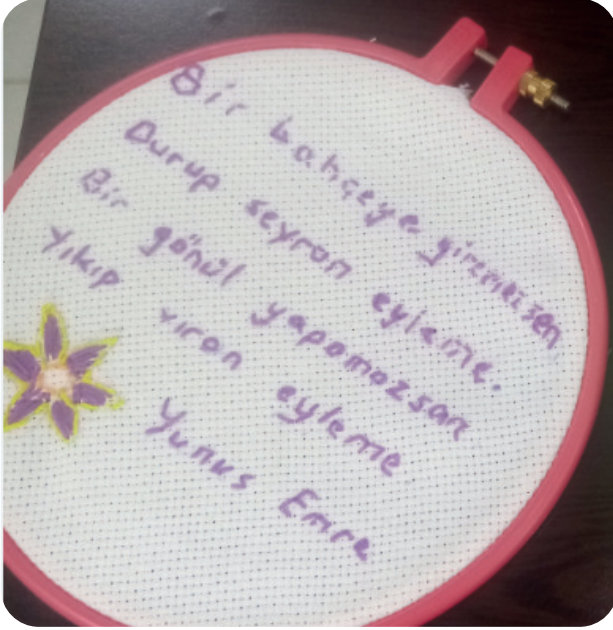 Bir bahçeye giremezsen
Durup seyran eyleme.
Bir gönül yapamazsan
Yıkıp viran eyleme
Yunus Emre